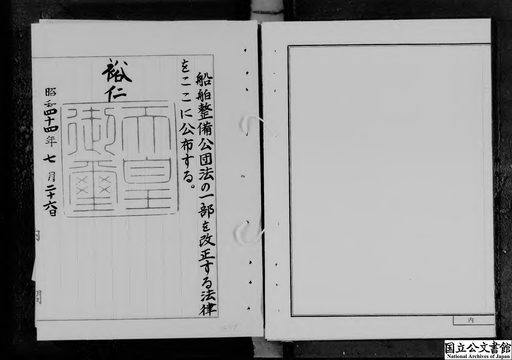 船舶整備公団法の一部を改正する法律
をここに公布する。
裕仁
天皇
御璽
昭和四十四年七月二十六日
内
国立公文書館
National Archives of Japan